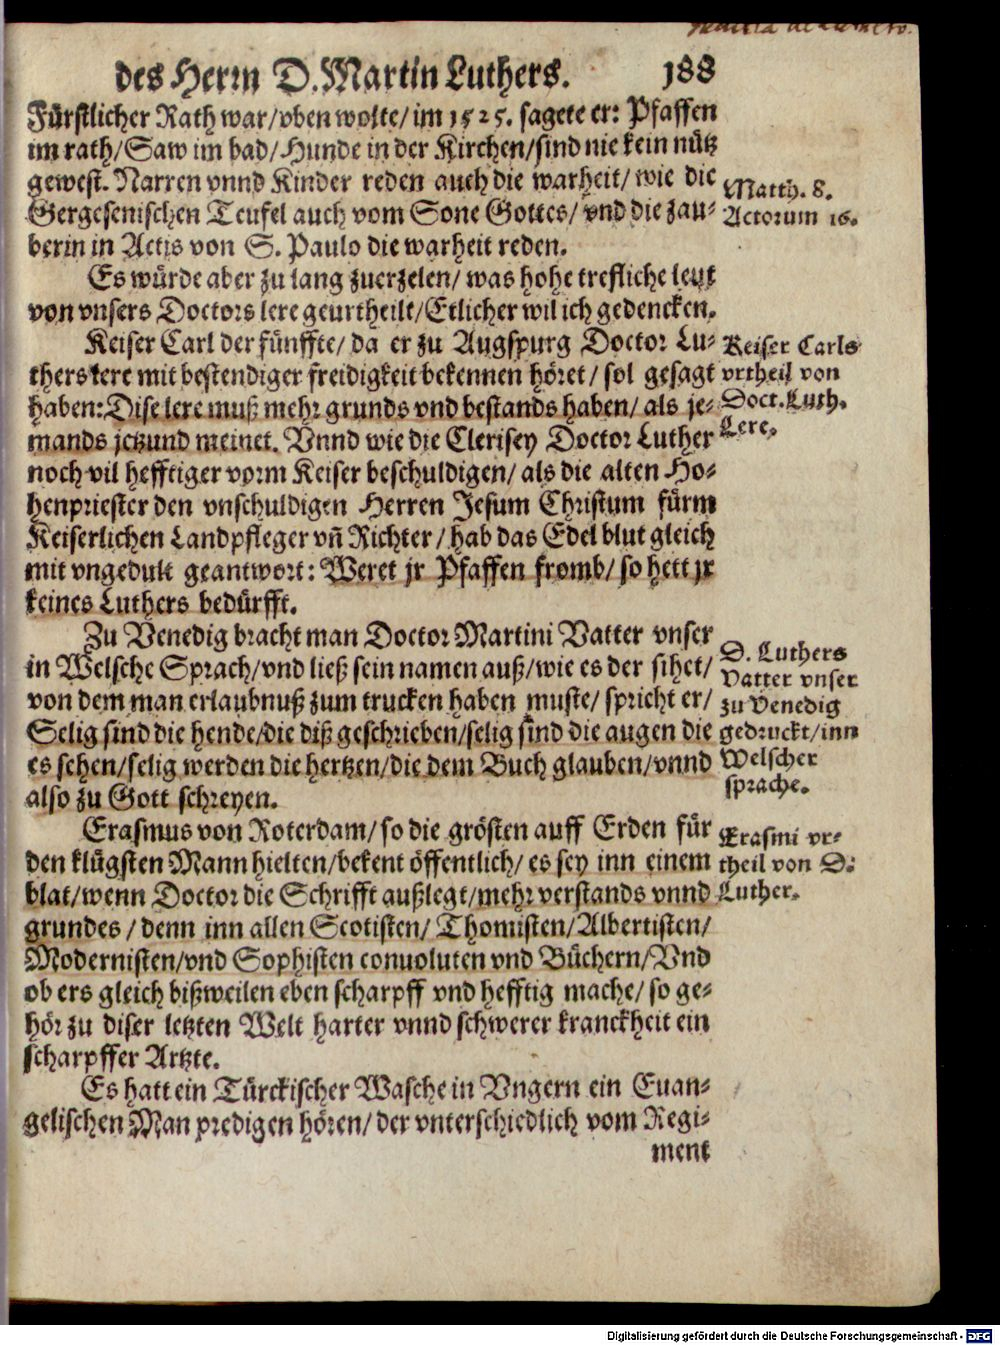 des Herrn D. Martin Luthers. 188
Fürstlicher Rath war/oben wolte/im 1525. sagete er: Pfaffen
im rath/Saw im bad/Hunde in der Kirchen/sind nie kein nütz
gewest. Narren vnnd Kinder reden auch die warheit/wie die
Gergesenischen Teufel auch vom Sone Gottes/vnd die zau-
berin in Actis von S. Paulo die warheit reden.
Matth. 8.
Actorum 16.
Es würde aber zu lang zuerzelen/was hohe trefliche leut
von vnsers Doctors lere geurtheilt/Etlicher wil ich gedencken.
Keiser Carl der fünffte/da er zu Augspurg Doctor Lu-
thers lere mit bestendiger freidigkeit bekennen höret/sol gesagt
haben: Dise lere muß mehr grunds vnd bestands haben/als je-
mands jetzund meinet. Vnnd wie die Clerisey Doctor Luther
noch vil hefftiger vorm Keiser beschuldigen/als die alten Ho-
henpriester den vnschuldigen Herren Jesum Christum fürm
Keiserlichen Landpfleger vñ Richter/hab das Edel blut gleich
mit vngedult geantwort: Weret jr Pfaffen fromb/so hett jr
keines Luthers bedürfft.
Keiser Carls
vrtheil von
Doct. Luth.
Lere.
Zu Venedig bracht man Doctor Martini Vatter vnser
in Welsche Sprach/vnd ließ sein namen auß/wie es der sihet/
von dem man erlaubnuß zum trucken haben muste/spricht er/
Selig sind die hende/die diß geschrieben/selig sind die augen die
es sehen/selig werden die hertzen/die dem Buch glauben/vnnd
also zu Gott schreyen.
D. Luthers
Vatter vnser
zu Venedig
gedruckt/inn
Welscher
sprache.
Erasmus von Roterdam/so die grösten auff Erden für
den klügsten Mann hielten/bekent öffentlich/es sey inn einem
blat/wenn Doctor die Schrifft außlegt/mehr verstands vnnd
grundes/denn inn allen Scotisten/Thomisten/Albertisten/
Modernisten/vnd Sophisten conuoluten vnd Büchern/Vnd
ob ers gleich bißweilen eben scharpff vnd hefftig mache/so ge-
hör zu diser letzten Welt harter vnnd schwerer kranckheit ein
scharpffer Artzte.
Erasmi vr-
theil von D.
Luther.
Es hatt ein Türckischer Wasche in Vngern ein Euan-
gelischen Man predigen hören/der vnterschiedlich vom Regi-
ment
Digitalisierung gefördert durch die Deutsche Forschungsgemeinschaft - DFG